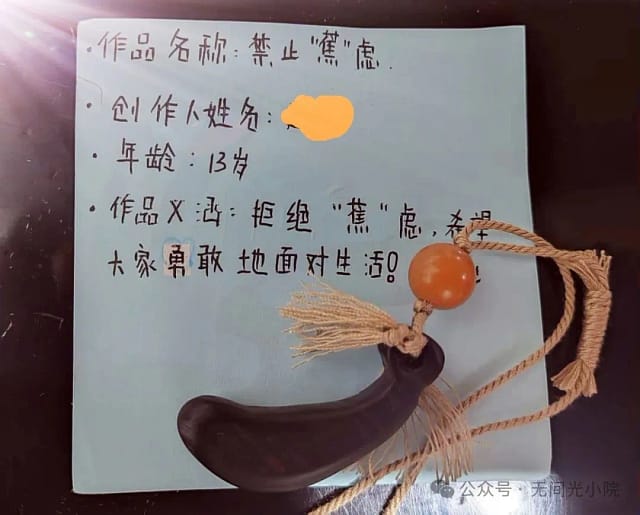 ·作品名称:禁止"蕉"虑.
·创作人姓名:
·年龄:13岁
·作品义涵:拒绝"蕉"虑,希望
大家勇敢地面对生活!
公众号·无间光小院